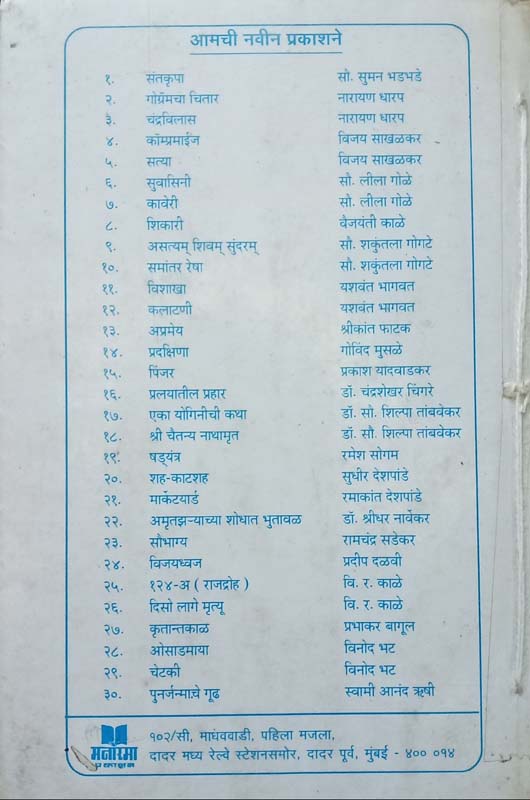 आमची नवीन प्रकाशने
१. संतकृपा सौ. सुमन भडभडे
२. गोग्रॅमचा चितार नारायण धारप
३. चंद्रविलास नारायण धारप
४. कॉम्प्रमाईज विजय साखळकर
५. सत्या विजय साखळकर
६. सुवासिनी सौ. लीला गोळे
७. कावेरी सौ. लीला गोळे
८. शिकारी वैजयंती काळे
९. असत्यम् शिवम् सुंदरम् सौ. शकुंतला गोगटे
१०. समांतर रेषा सौ. शकुंतला गोगटे
११. विशाखा यशवंत भागवत
१२. कलाटणी यशवंत भागवत
१३. अप्रमेय श्रीकांत फाटक
१४. प्रदक्षिणा गोविंद मुसळे
१५. पिंजर प्रकाश यादवाडकर
१६. प्रलयातील प्रहार डॉ. चंद्रशेखर चिंगरे
१७. एका योगिनीची कथा डॉ. सौ. शिल्पा तांबवेकर
१८. श्री चैतन्य नाथामृत डॉ. सौ. शिल्पा तांबवेकर
१९. षड्यंत्र रमेश सोगम
२०. शह-काटशह सुधीर देशपांडे
२१. मार्केटयार्ड रमाकांत देशपांडे
२२. अमृतझऱ्याच्या शोधात भुतावळ डॉ. श्रीधर नार्वेकर
२३. सौभाग्य रामचंद्र सडेकर
२४. विजयध्वज प्रदीप दळवी
२५. १२४-अ ( राजद्रोह ) वि. र. काळे
२६. दिसो लागे मृत्यू वि. र. काळे
२७. कृतान्तकाळ प्रभाकर बागूल
२८. ओसाडमाया विनोद भट
२९. चेटकी विनोद भट
३०. पुनर्जन्माचे गूढ स्वामी आनंद ऋषी
मनोरमा
प्रकाशन
१०२/सी, माधववाडी, पहिला मजला,
दादर मध्य रेल्वे स्टेशनसमोर, दादर पूर्व, मुंबई - ४०० ०१४